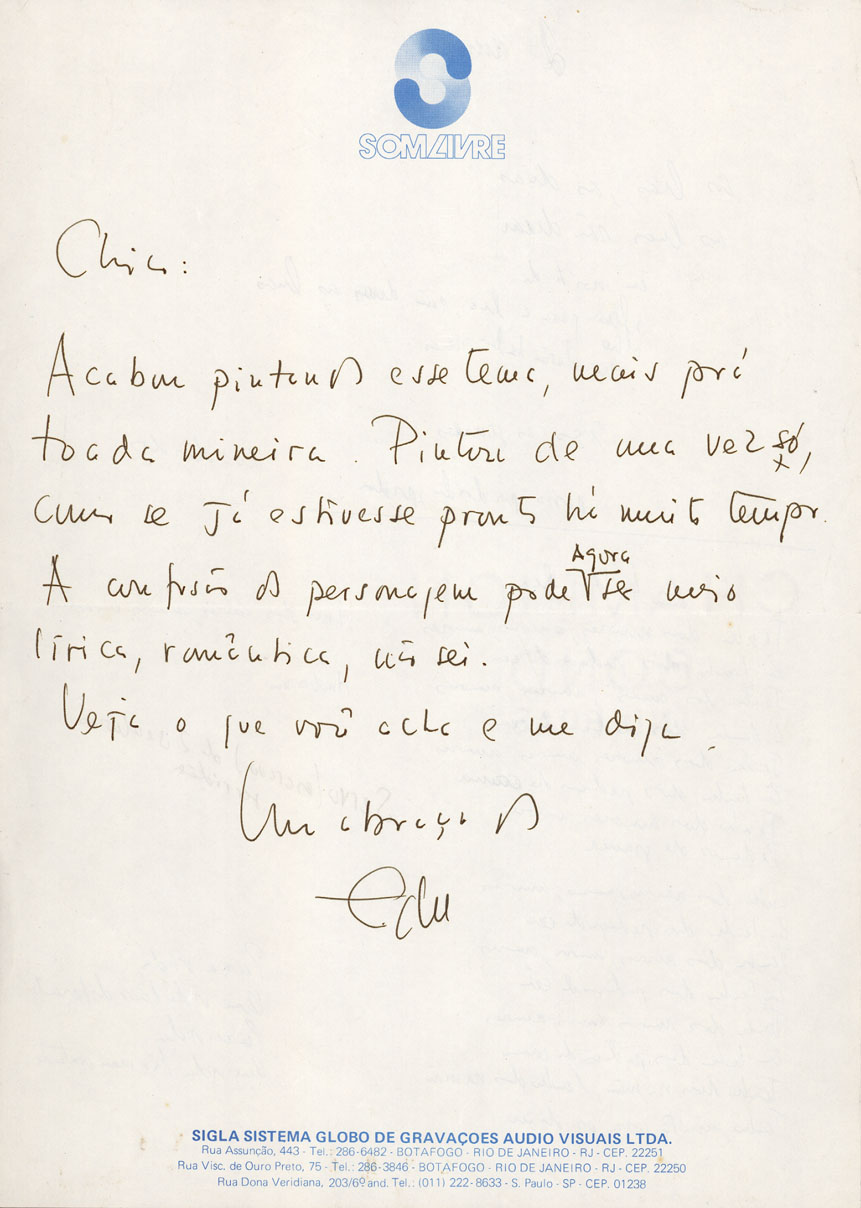 SOM LIVRE
Chico:
Acabou pintando esse tema, mais prá
toada mineira. Pintou de uma vez só,
como se já estivesse pronto há muito tempo.
A confusão do personagem pode Agora ser meio
lírica, romântica, não sei.
Veja o que você acha e me diga.
Um abraço do
Edu
SIGLA SISTEMA GLOBO DE GRAVAÇOES AUDIO VISUAIS LTDA.
Rua Assunção, 443 - Tel.: 286-6482 - BOTAFOGO - RIO DE JANEIRO - RJ - CEP. 22251
Rua Visc. de Ouro Preto, 75 - Tel.: 286-3846 - BOTAFOGO - RIO DE JANEIRO - RJ - CEP. 22250
Rua Dona Veridiana, 203/6º and. Tel.: (011) 222-8633 - S. Paulo - SP - CEP. 01238